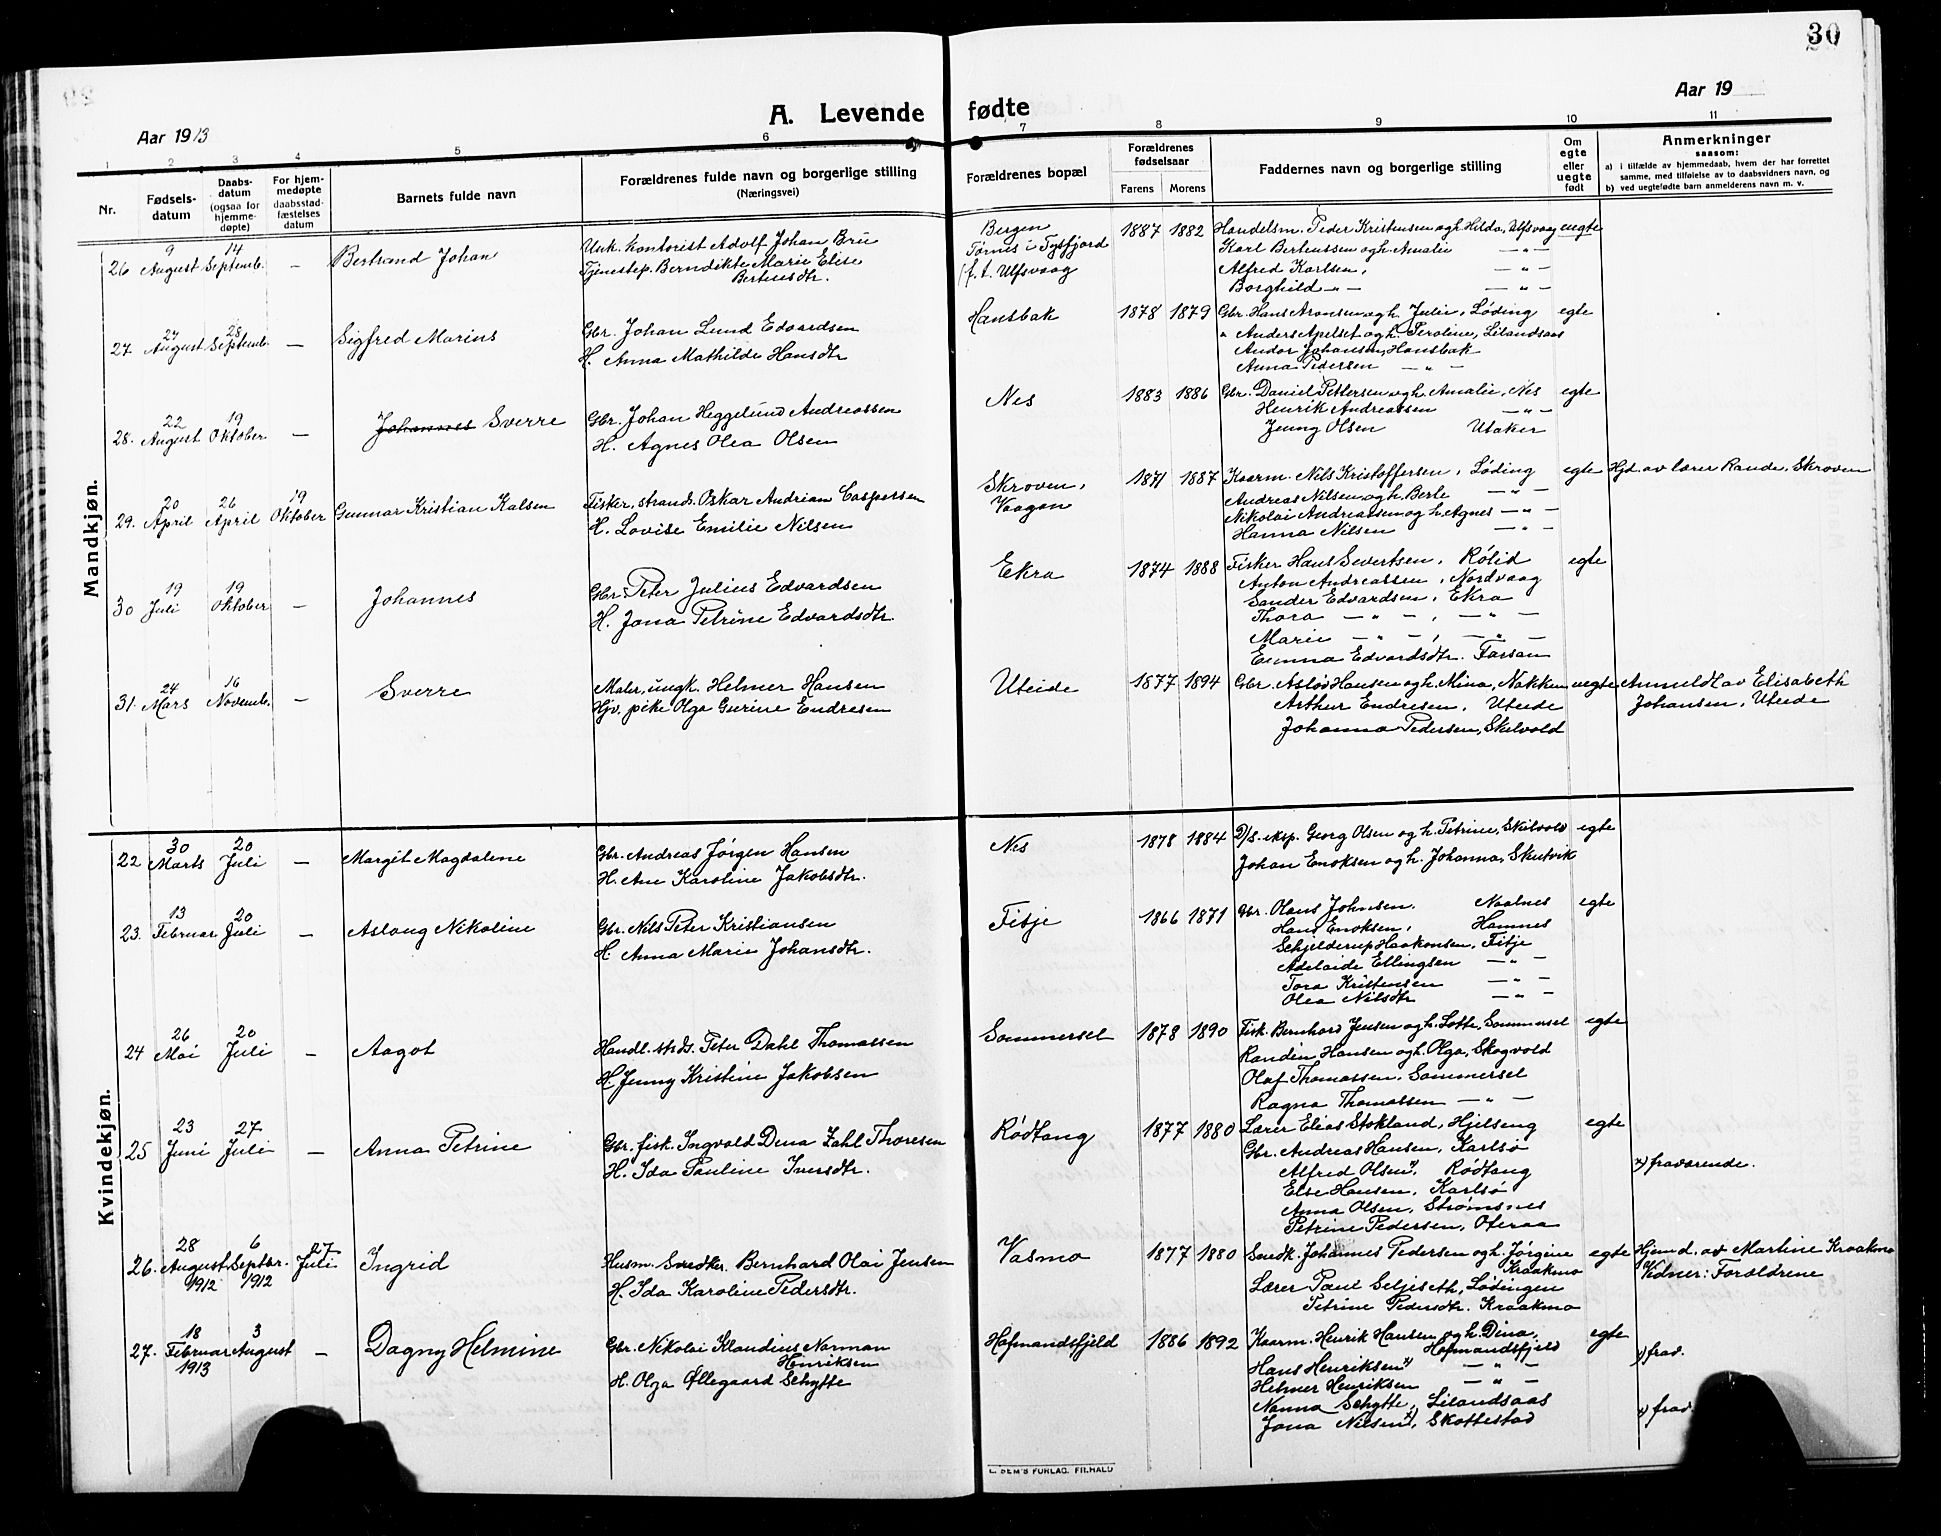 30
Aar 1913
A. Levende fødte
Aar 19
1 2 3 4 5 6 7 8 9 10 11
Nr.
Fødsels-
datum
Daabs-
datum
(ogsaa for
hjemme-
døpte)
For hjem-
medøpte
daabsstad-
fæstelses
datum
Barnets fulde navn
Forældrenes fulde navn og borgerlige stilling
(Næringsvei)
Forældrenes bopæl
Forældrenes
fødselsaar
Farens Morens
Faddernes navn og borgerlige stilling
Om
egte
eller
uegte
født
Anmerkninger
saasom:
a) i tilfælde av hjemmedaab, hvem der har forrettet
samme, med tilføielse av to daabsvidners navn, og
b) ved uegtefødte barn anmelderens navn m. v.
Mandkjøn.
26 9 August 14 Septemb. — Bertrand Johan
Unk. kontorist Adolf Johan Bru
Tjenstep. Berndikte Marie Elise
Berteusdtr.
Bergen
Tørnes i Tysfjord
(f. t. Ulfsvaag
1887 1882
Handelsm. Peder Kristensen og h. Hilda, Ulfsvaag uegte
Karl Berteussen og h. Amalie — " —
Alfred Karlsen, — " —
Borghild — " — — " —
27. 27 August 28 Septemb. — Sigfred Marius
Gbr. Johan Lund Edvardsen
H. Anna Mathilde Hansdtr
Hansbak
1878 1879
Gbr. Hans Aronsen og h. Julie, Løding egte
" Anders Apelset og h. Peroline, Lilandsaas
Andor Johansen, Hansbak
Anna Pedersen — " —
28. 22 August 19 Oktober — Johannes Sverre
Gbr. Johan Heggelund Andreassen
H. Agnes Olea Olsen
Nes
1883 1886
Gbr. Daniel Pettersen og h. Amalie, Nes egte
Henrik Andreassen — " —
Jenny Olsen Utaker
29. 20 April 26 April 19 Oktober Gunnar Kristian Kalsen
Fisker, strands. Oskar Andrian Caspersen
H. Lovise Emilie Nilsen
Skroven,
Vaagan
1871 1887
Kaarm. Nils Kristoffersen, Løding egte
Andreas Nilsen og h. Berle — " —
Nikolai Andreassen og h. Agnes — " —
Hanna Nilsen — " —
Hjd. av lærer Rande, Skroven
30 19 Juli 19 Oktober — Johannes
Gbr. Peter Julius Edvardsen
H. Jona Petrine Edvardsdtr.
Ekra
1874 1888
Fisker Hans Severtsen, Rølid egte
Anton Andreassen, Nordvaag
Sander Edvardsen, Ekra
Thora — " —, — " —
Marie — " —, — " —
Emma Edvardsdtr. Farsan
31. 24 Mars 16 Novemb. — Sverre
Maler, ungk. Helmer Hansen
Hjv. pike Olga Gurine Endresen
Uteide
1877 1894
Gbr. Asløv Hansen og h. Mina, Nakken uegte
Arthur Endresen, Uteide
Johanna Pedersen, Skilvold
Anmeldt av Elisabeth
Johansen, Uteide
Kvindekjøn.
22 30 Marts 20 Juli — Margit Magdalene
Gbr. Andreas Jørgen Hansen
H. Ane Karoline Jakobsdtr.
Nes
1878 1884
D/S. eksp. Georg Olsen og h. Petrine, Skilvold egte
Johan Enoksen og h. Johanna, Skutvik
23. 13 Februar 20 Juli — Aslaug Nikoline
Gbr. Nils Peter Kristiansen
H. Anna Marie Johansdtr.
Fitje
1866 1871
Gbr. Olaus Johnsen, Naalnes egte
Hans Enoksen, Hamnes
Schjelderup Haakonsen, Fitje
Adelaide Ellingsen — " —
Tora Kristensen — " —
Olea Nilsdtr — " —
24 26 Mai 20 Juli — Aagot
Handl. strds. Peter Dahl Thomassen
H. Jenny Kristine Jakobsen
Sommersel
1878 1890
Fisk. Bernhard Jensen og h. Lotte, Sommersel egte
Randin Hansen og h. Olga, Skogvold
Olaf Thomassen, Sommersel
Ragna Thomassen — " —
25 23 Juni 27 Juli — Anna Petrine
Gbr. fisk. Ingvald Dena Zahl Thoresen
H. Ida Pauline Iversdtr.
Rødtang
1877 1880
Lærer Elias Stokland, Hjelseng egte
Gbr. Andreas Hansen, Karlsø
Alfred Olsen x), Rødtang
Else Hansen, Karlsø
Anna Olsen, Strømsnes
Petrine Pedersen, Oteraa
x) fraværende.
26. 28 August 1912 6 Septbr. 1912 27 Juli Ingrid
Husm. Snedker. Bernhard Olai Jensen
H. Ida Karoline Pedersdtr.
Vasmo
1877 1880
Snedk. Johannes Pedersen og h. Jørgine egte
Kraakmo
Lærer Paul Seljeseth, Lødingen
Petrine Pedersdtr. Kraakmo
Hjemd. av Martine Kraakmo
Vidner: Forældrene
27. 18 Februar 1913 3 August — Dagny Helmine
Gbr. Nikolai Klaudius Norman
Henriksen
H. Olga Øllegaard Schytte
Hofmandsfjeld
1886 1892
Kaarm. Henrik Hansen og h. Dina, egte
Hofmandsfjeld
Hans Henriksen x) — " —
Helmer Henriksen — " —
Nanna Schytte, Lilandsaas
Jona Nilsen x), Skottestad
x) frav.
x) frav